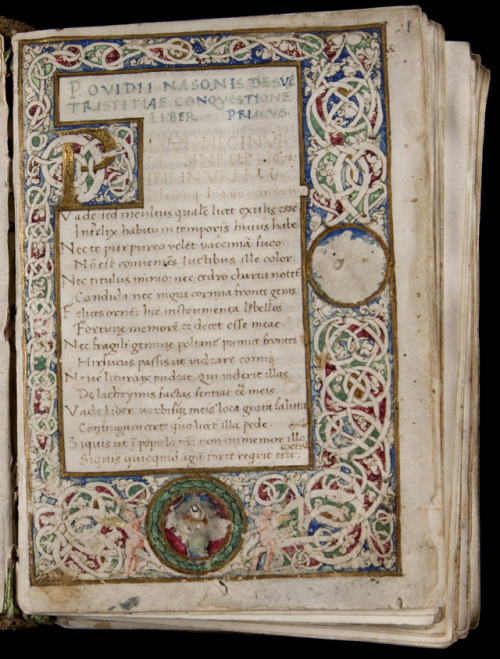 P. OVIDII NASONIS DE SVE
TRISTITIAE CONQVESTIONE
LIBER PRIMVS.
P
Vade sed incultus qualē licet exulis esse
Infelix habitum temporis huius habe
Nec te purpureo velēt vaccinia fuco
Nō est conueniēs luctibus ille color.
Nec titulus minio: nec cedro charta notet
Candida nec nigra cornua fronte geras.
Felices ornēt hęc instrumenta libellos
Fortunę memorē te decet esse meae
Nec fragili geminę poliant pumice frontes
Hirsutus passis ut videare comis
Neue liturarum pudeat. qui viderit illas
De lachrymis factas sentiat eē meis.
Vade liber verbisq; meis loca grata saluta
Contingam certe quo licet illa pede.
Siquis ut ī populo non īmemor illo
Siquis qui quid agā forte requirat erit.